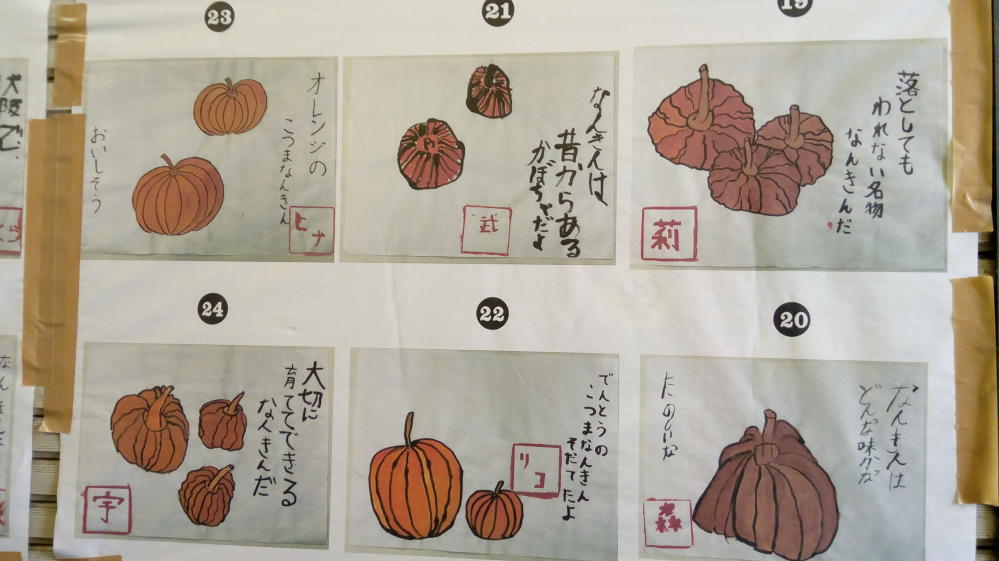 19
落としても
われない名物
なんきんだ
莉
20
なんきんは
どんな味かな
たのしいな
森
21
なんきんは、
昔からある
かぼちゃだよ
武
22
でんとうの
こつまなんきん
そだてたよ
リコ
23
オレンジの
こつまなんきん
おいしそう
ヒナ
24
大切に
育ててできる
なんきんだ
宇
大阪で、